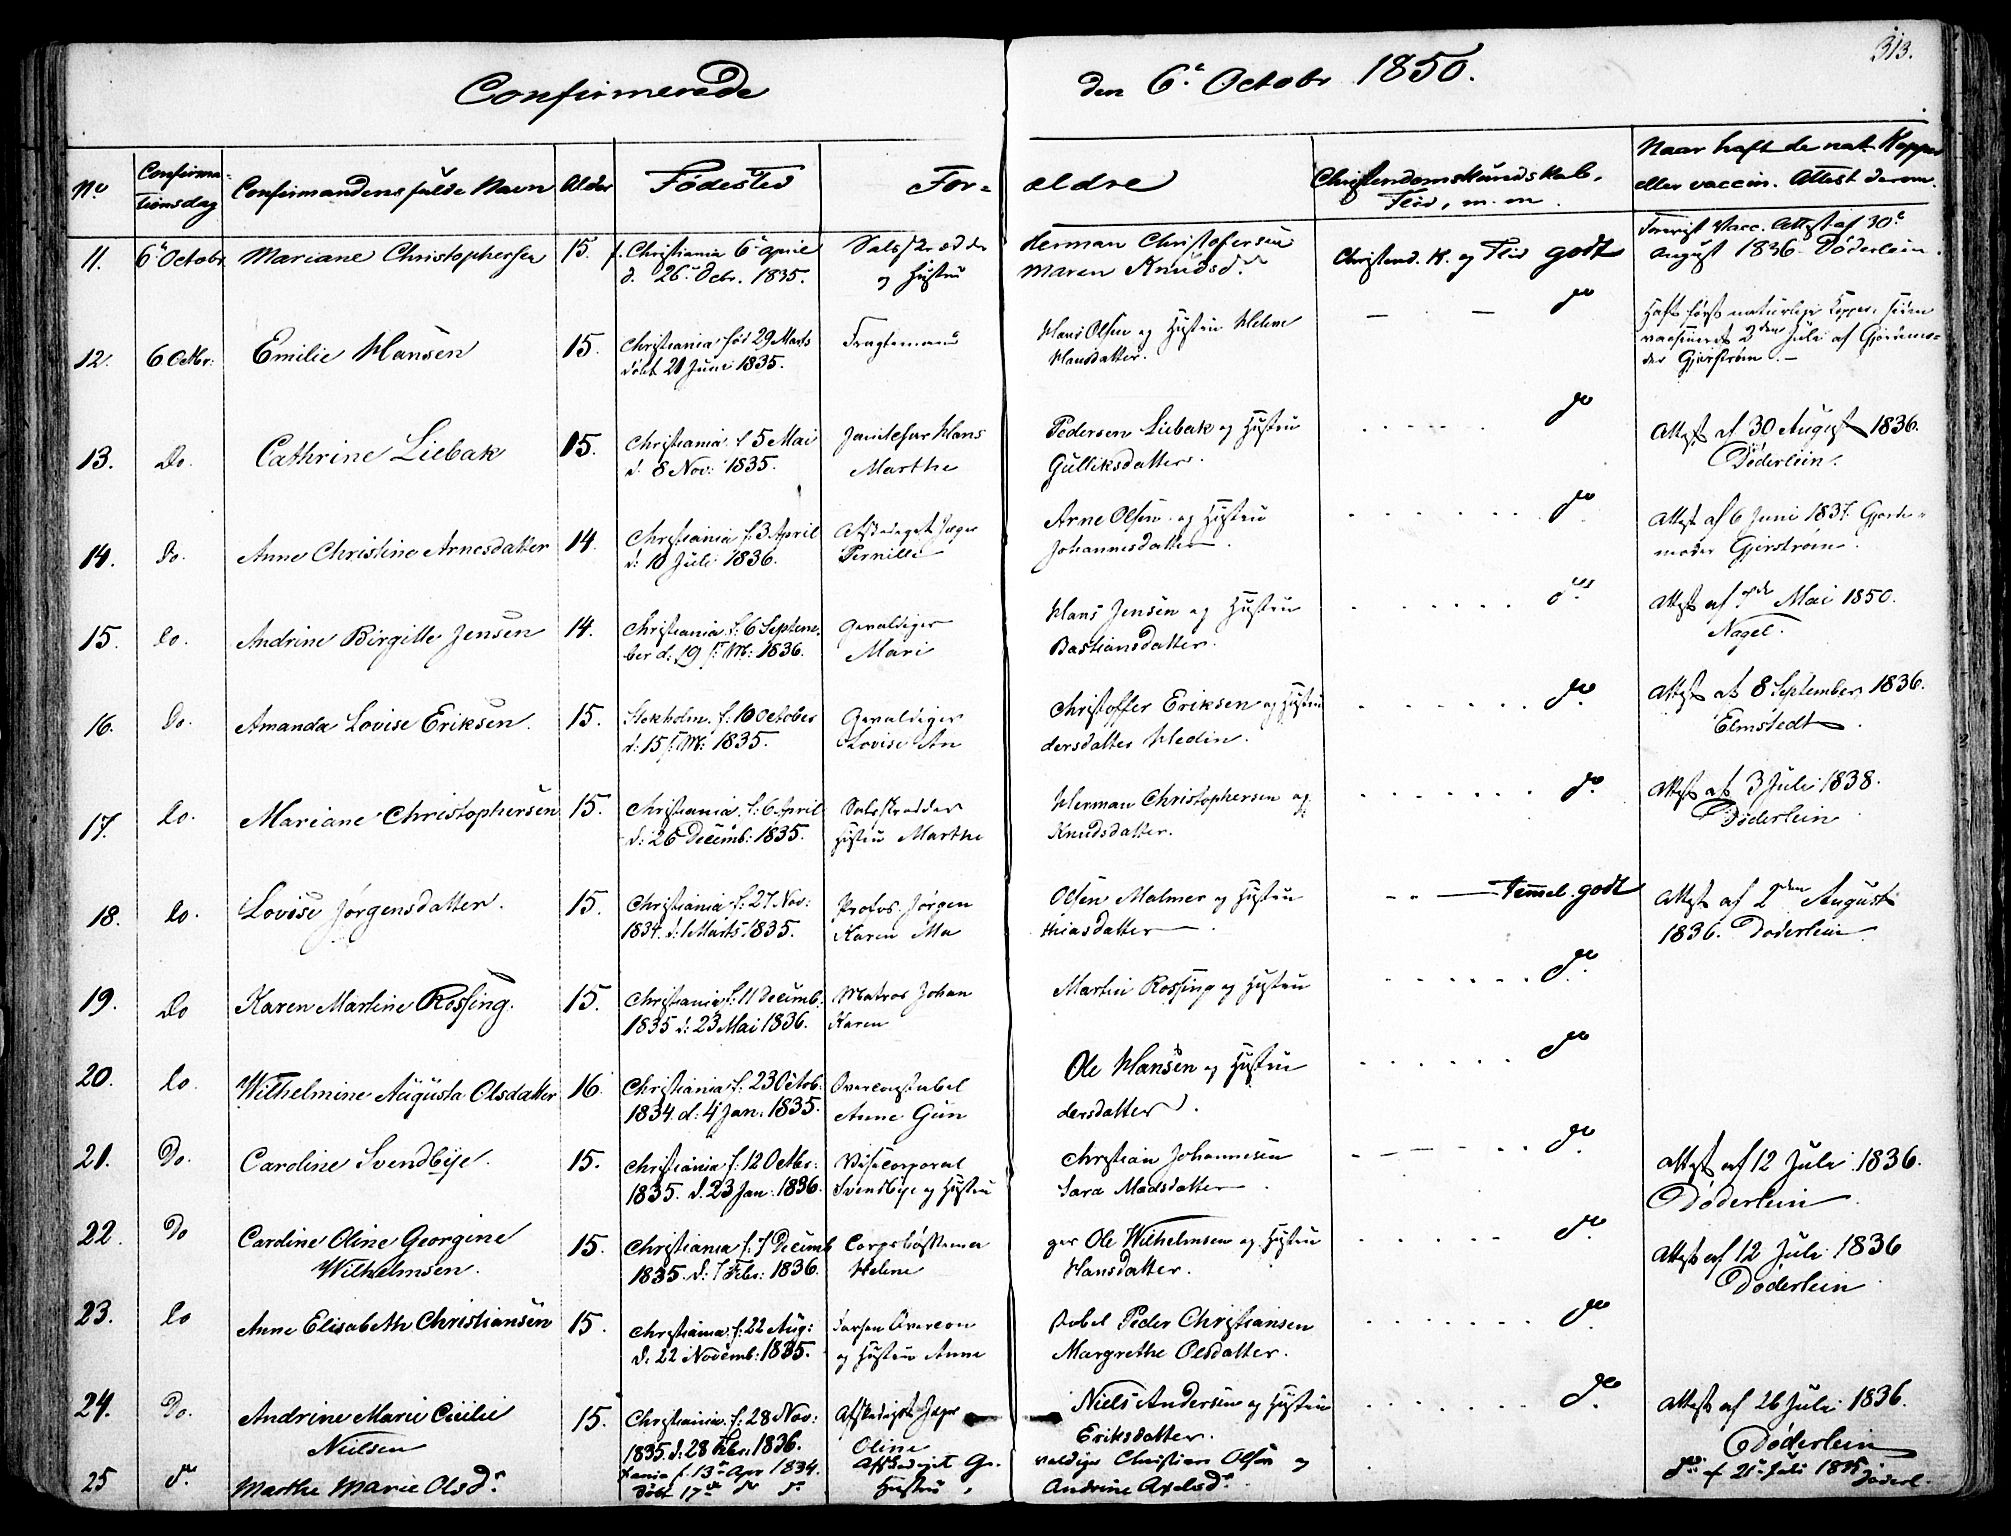 313.
Confirmerede den 6te Octobr 1850.
No Confirma-tionsdag Confirmandens fulde Navn Alder Fødested For-ældre Christendomskundskab, Flid, m. m. Naar haft de nat. Kopper eller vaccin. Attest derom.
11. 6te Octobr Mariane Christophersen 15. f. Christiania 6te April
d. 26te Decbr. 1835. og Hustru
Herman Christofersen
Maren Knudsd.
Christend. K. og Flid godt
Vacc. Attest af 30te
August 1836 Døderlein.
12. 6 Octbr: Emilie Hansen 15. Christiania fød 29 Marts
døbt 21 Juni 1835.
Hans Olsen og Hustru Helene
Hansdatter.
do
Haft først naturlige Kopper, siden
vaccineret 2den Juli af Gjordemo-
der Gjerstrøm.
13. Do. Cathrine Liebak 15. Christiania f. 5 Mai
d. 8 Nov: 1835.
Hans
Marthe
Pedersen Liebak og Hustru
Gulliksdatter.
do
Attest af 30 August 1836.
Døderlein.
14. Do. Anne Christine Arnesdatter 14. Christiania f. 3 April
d: 10 Juli 1836.
Afskediget Jæger
Pernille
Arne Olsen og Hustru
Johannesdatter.
do
Attest af 6 Juni 1837. Gjorde-
moder Gjerstrøm.
15. Do. Andrine Birgitte Jensen 14. Christiania f. 6 Septem-
ber d: 19 s: M: 1836.
Gevaldiger
Mari
Hans Jensen og Hustru
Bastiansdatter.
do
Attest af Mai 1850.
Nagel.
16. Do. Amanda Lovise Eriksen. 15. Stokholm. f: 10 October
d: 15 s: M: 1835.
Gevaldiger
Lovise An
Christoffer Eriksen og Hustru
dersdatter Hedin.
do
Attest af 8 September 1836.
Elmstedt.
17. Do. Mariane Christophersen 15. Christiania. f: 6 April
d: 26 Decemb: 1835.
Hustru Marthe
Herman Christophersen og
Knudsdatter.
do
Attest af 3 Juli 1838.
Døderlein
18. Do. Lovise Jørgensdatter. 15. Christiania f: 27 Nov:
1834. d: 1 Marts 1835.
Profos Jørgen
Karen Ma
Olsen Malmer og Hustru
thiasdatter.
Temmel. godt
Attest af 2den August
1836. Døderlein
19. Do Karen Martine Rossing. 15. Christiania f: 11 Decemb.
1835 d: 23 Mai 1836.
Matros Johan
Karen
Martin Rossing og Hustru
do
20. Do. Wilhelmine Augusta Olsdatter 16. Christiania f: 23 Octob.
1834 d: 4 Jan: 1835.
Overconstabel
Anne Gun
Ole Hansen og Hustru
dersdatter.
do
21. Do. Caroline Svendbye. 15. Christiania f: 12 Octbr:
1835. d. 23 Jan: 1836.
Visecorporal
Svendbye og Hustru
Christian Johannesen
Sara Madsdatter.
do
Attest af 12 Juli 1836.
Døderlein
22. Do Caroline Oline Georgine
Wilhelmsen. 15. Christiania f. 7 Decemb
1835. d: 7 Febr: 1836.
Corpsbøssema
Helene
ger Ole Wilhelmsen og Hustru
Hansdatter.
do
Attest af 12 Juli 1836
Døderlein
23. Do Anne Elisabeth Christiansen 15. Christiania: f: 22 Aug:
d. 22 Novemb: 1835.
Overcon
og Hustru Anne
stabel Peder Christiansen
Margrethe Olsdatter.
do
24. Do. Andrine Marie Cicilie
Nielsen 15. Christiania. f: 28 Nov:
1835. d: 28 Febr. 1836.
Afskediget Jæger
Oline
Niels Andersen og Hustru
Eriksdatter.
do
Attest af 26 Juli 1836.
Døderlein
25 do Marthe Marie Olsdr f. 13de Apr 1834.
Døbt 17de do do
Afskediget Ge-
Hustru
valdiger Christian Olsen og
Andrine Axelsdr
do af 21de Juli 1835 Døderl.